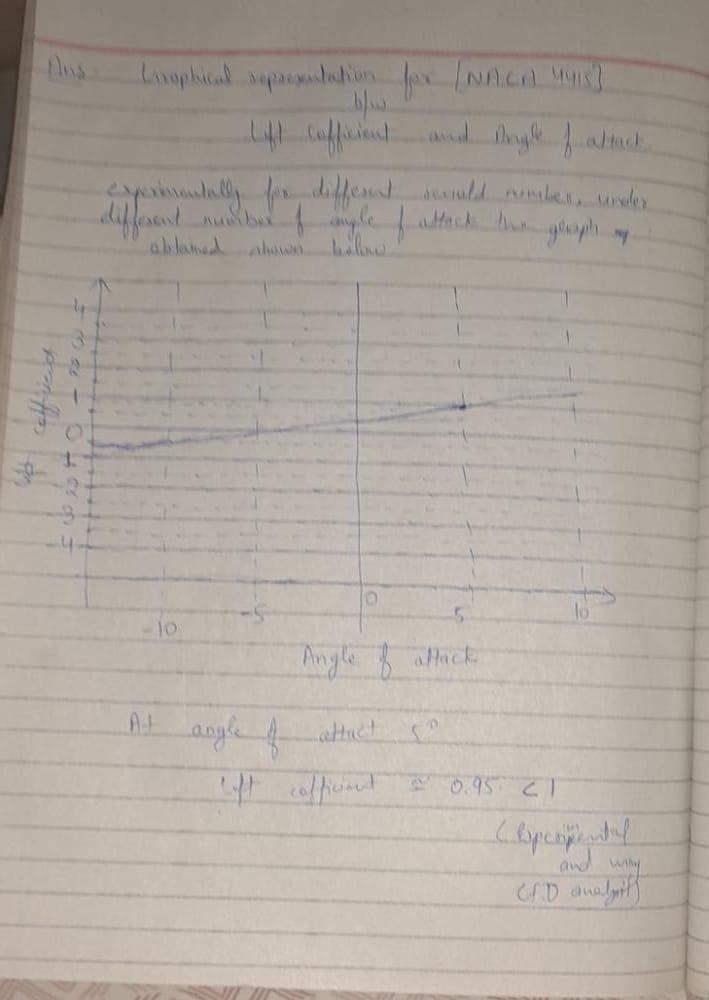 Ans. Graphical representation for [NACA 4415]
b/w
Lift cofficient and Angle of attack
experimentally for different number, under
different number of angle of attack the graph
obtained shown below
4
3
2
1
0
-1
2
3
-4
Lift cofficient
-10
-5
0
5
10
Angle of attack
At angle of attact 5°
Lift cofficient ≃ 0.95 < 1
(Experimental
and using
CFD analysis)